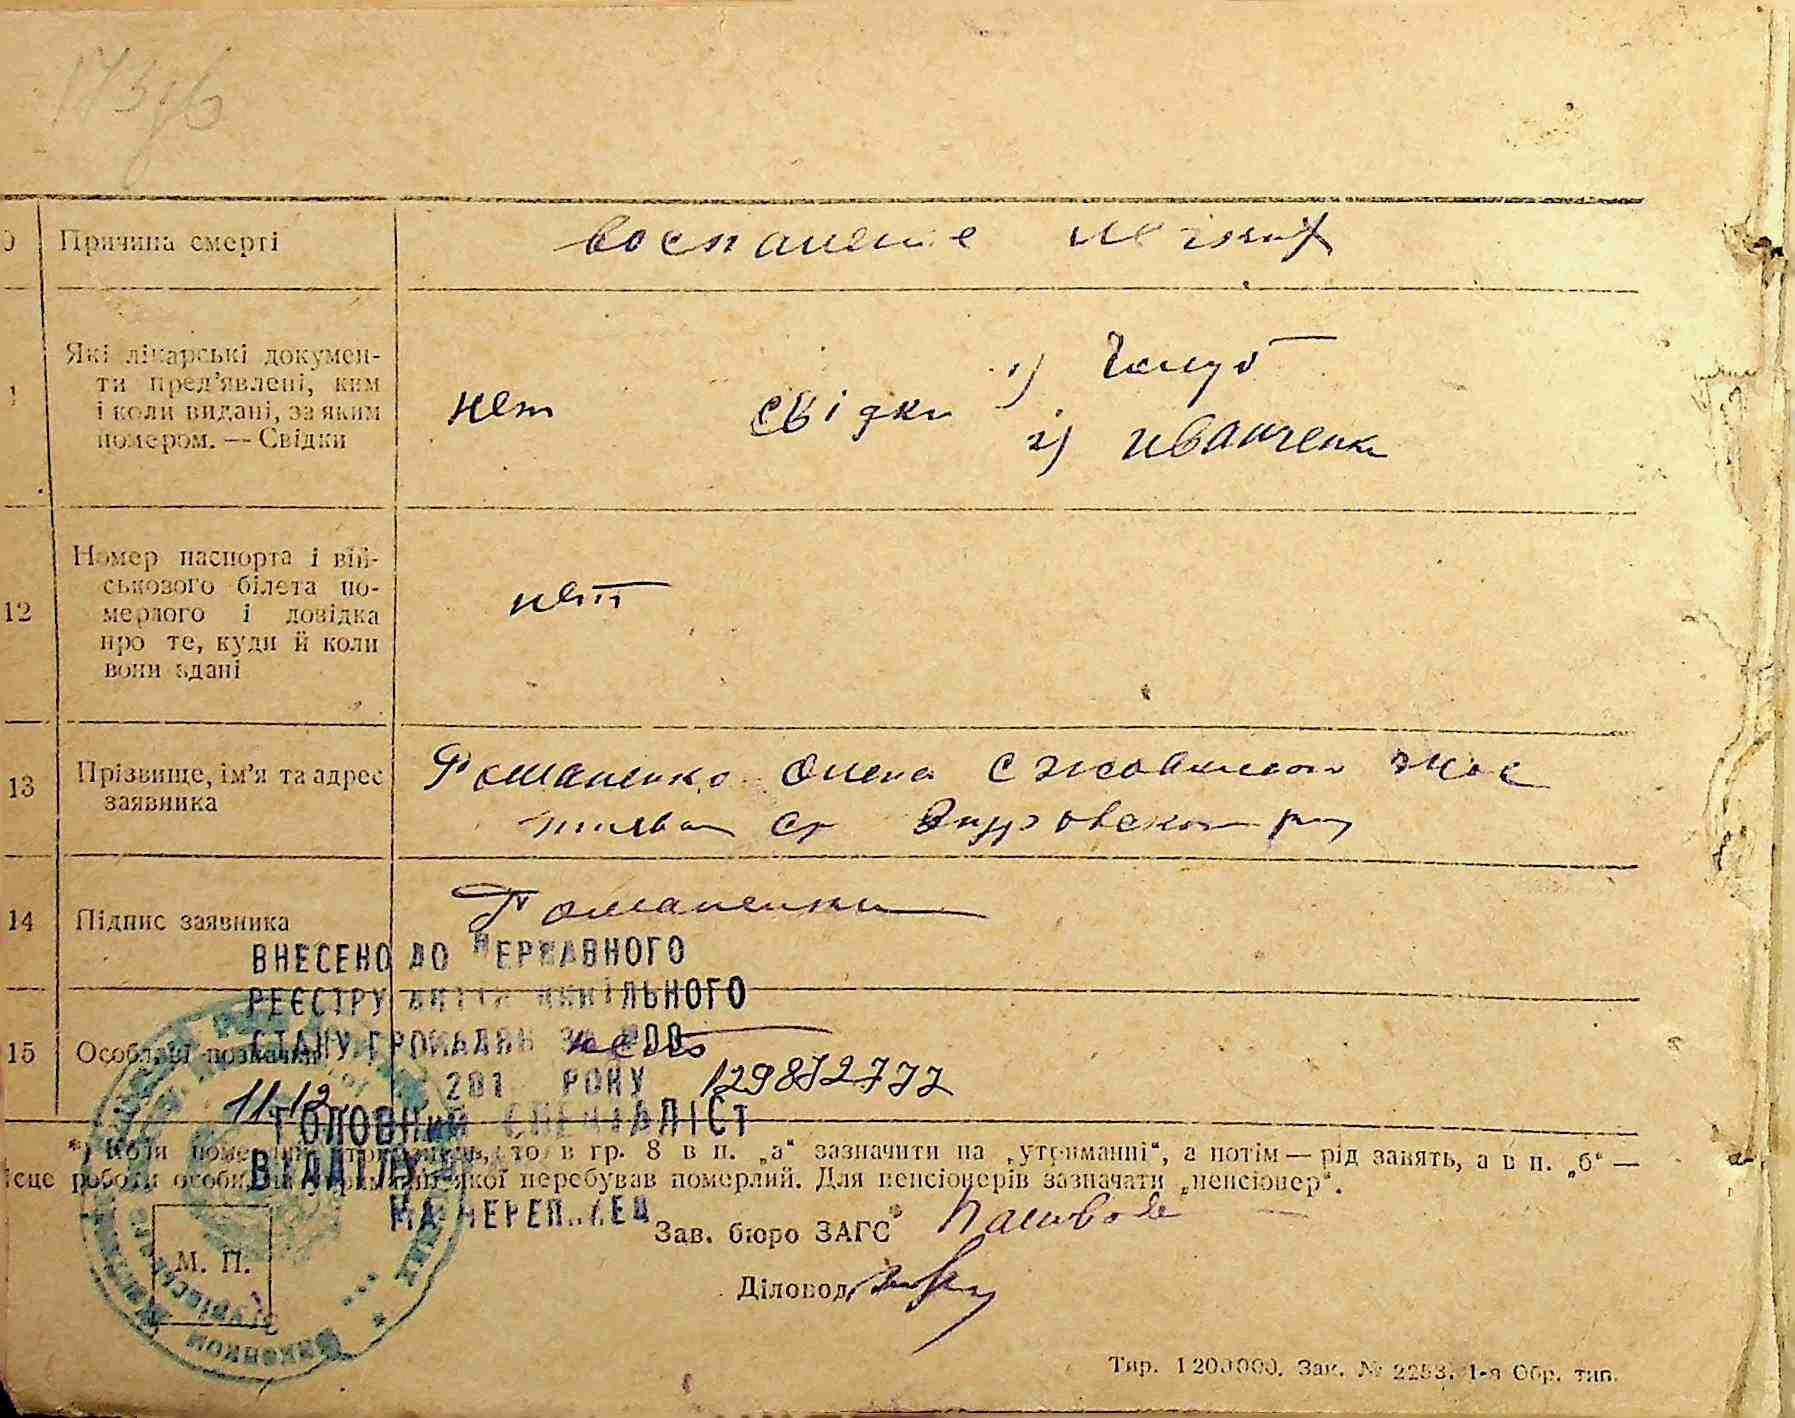 Причина смерті
воспаление легких
Які лікарські докумен-
ти пред'явлені, ким
і коли видані, за яким
номером. — Свідки
нет свідки 1) Голуб
2) Иванченко
12
Номер паспорта і вій-
ськового білета по-
мерлого і довідка
про те, куди й коли
вони здані
нет
13
Прізвище, ім'я та адрес
заявника
Романенко Олена
14
Підпис заявника
Романенко
ВНЕСЕНО ДО ДЕРЖАВНОГО
РЕЄСТРУ АКТІВ ЦИВІЛЬНОГО
СТАНУ ГРОМАДЯН ЗА №00
15
Особливі позначки
нет
201 РОКУ 129872777
11.12
ГОЛОВНИЙ СПЕЦІАЛІСТ
ВІДДІЛУ
*) Коли померлий утриманець, то в гр. 8 в п. „а“ зазначити на „утриманні“, а потім — рід занять, а в п. „б“ —
ісце роботи особи, на утриманні якої перебував померлий. Для пенсіонерів зазначати „пенсіонер“.
Зав. бюро ЗАГС
М. П.
Діловод
Тир. 1200000. Зак. № 2253. 1-я Обр. тип.